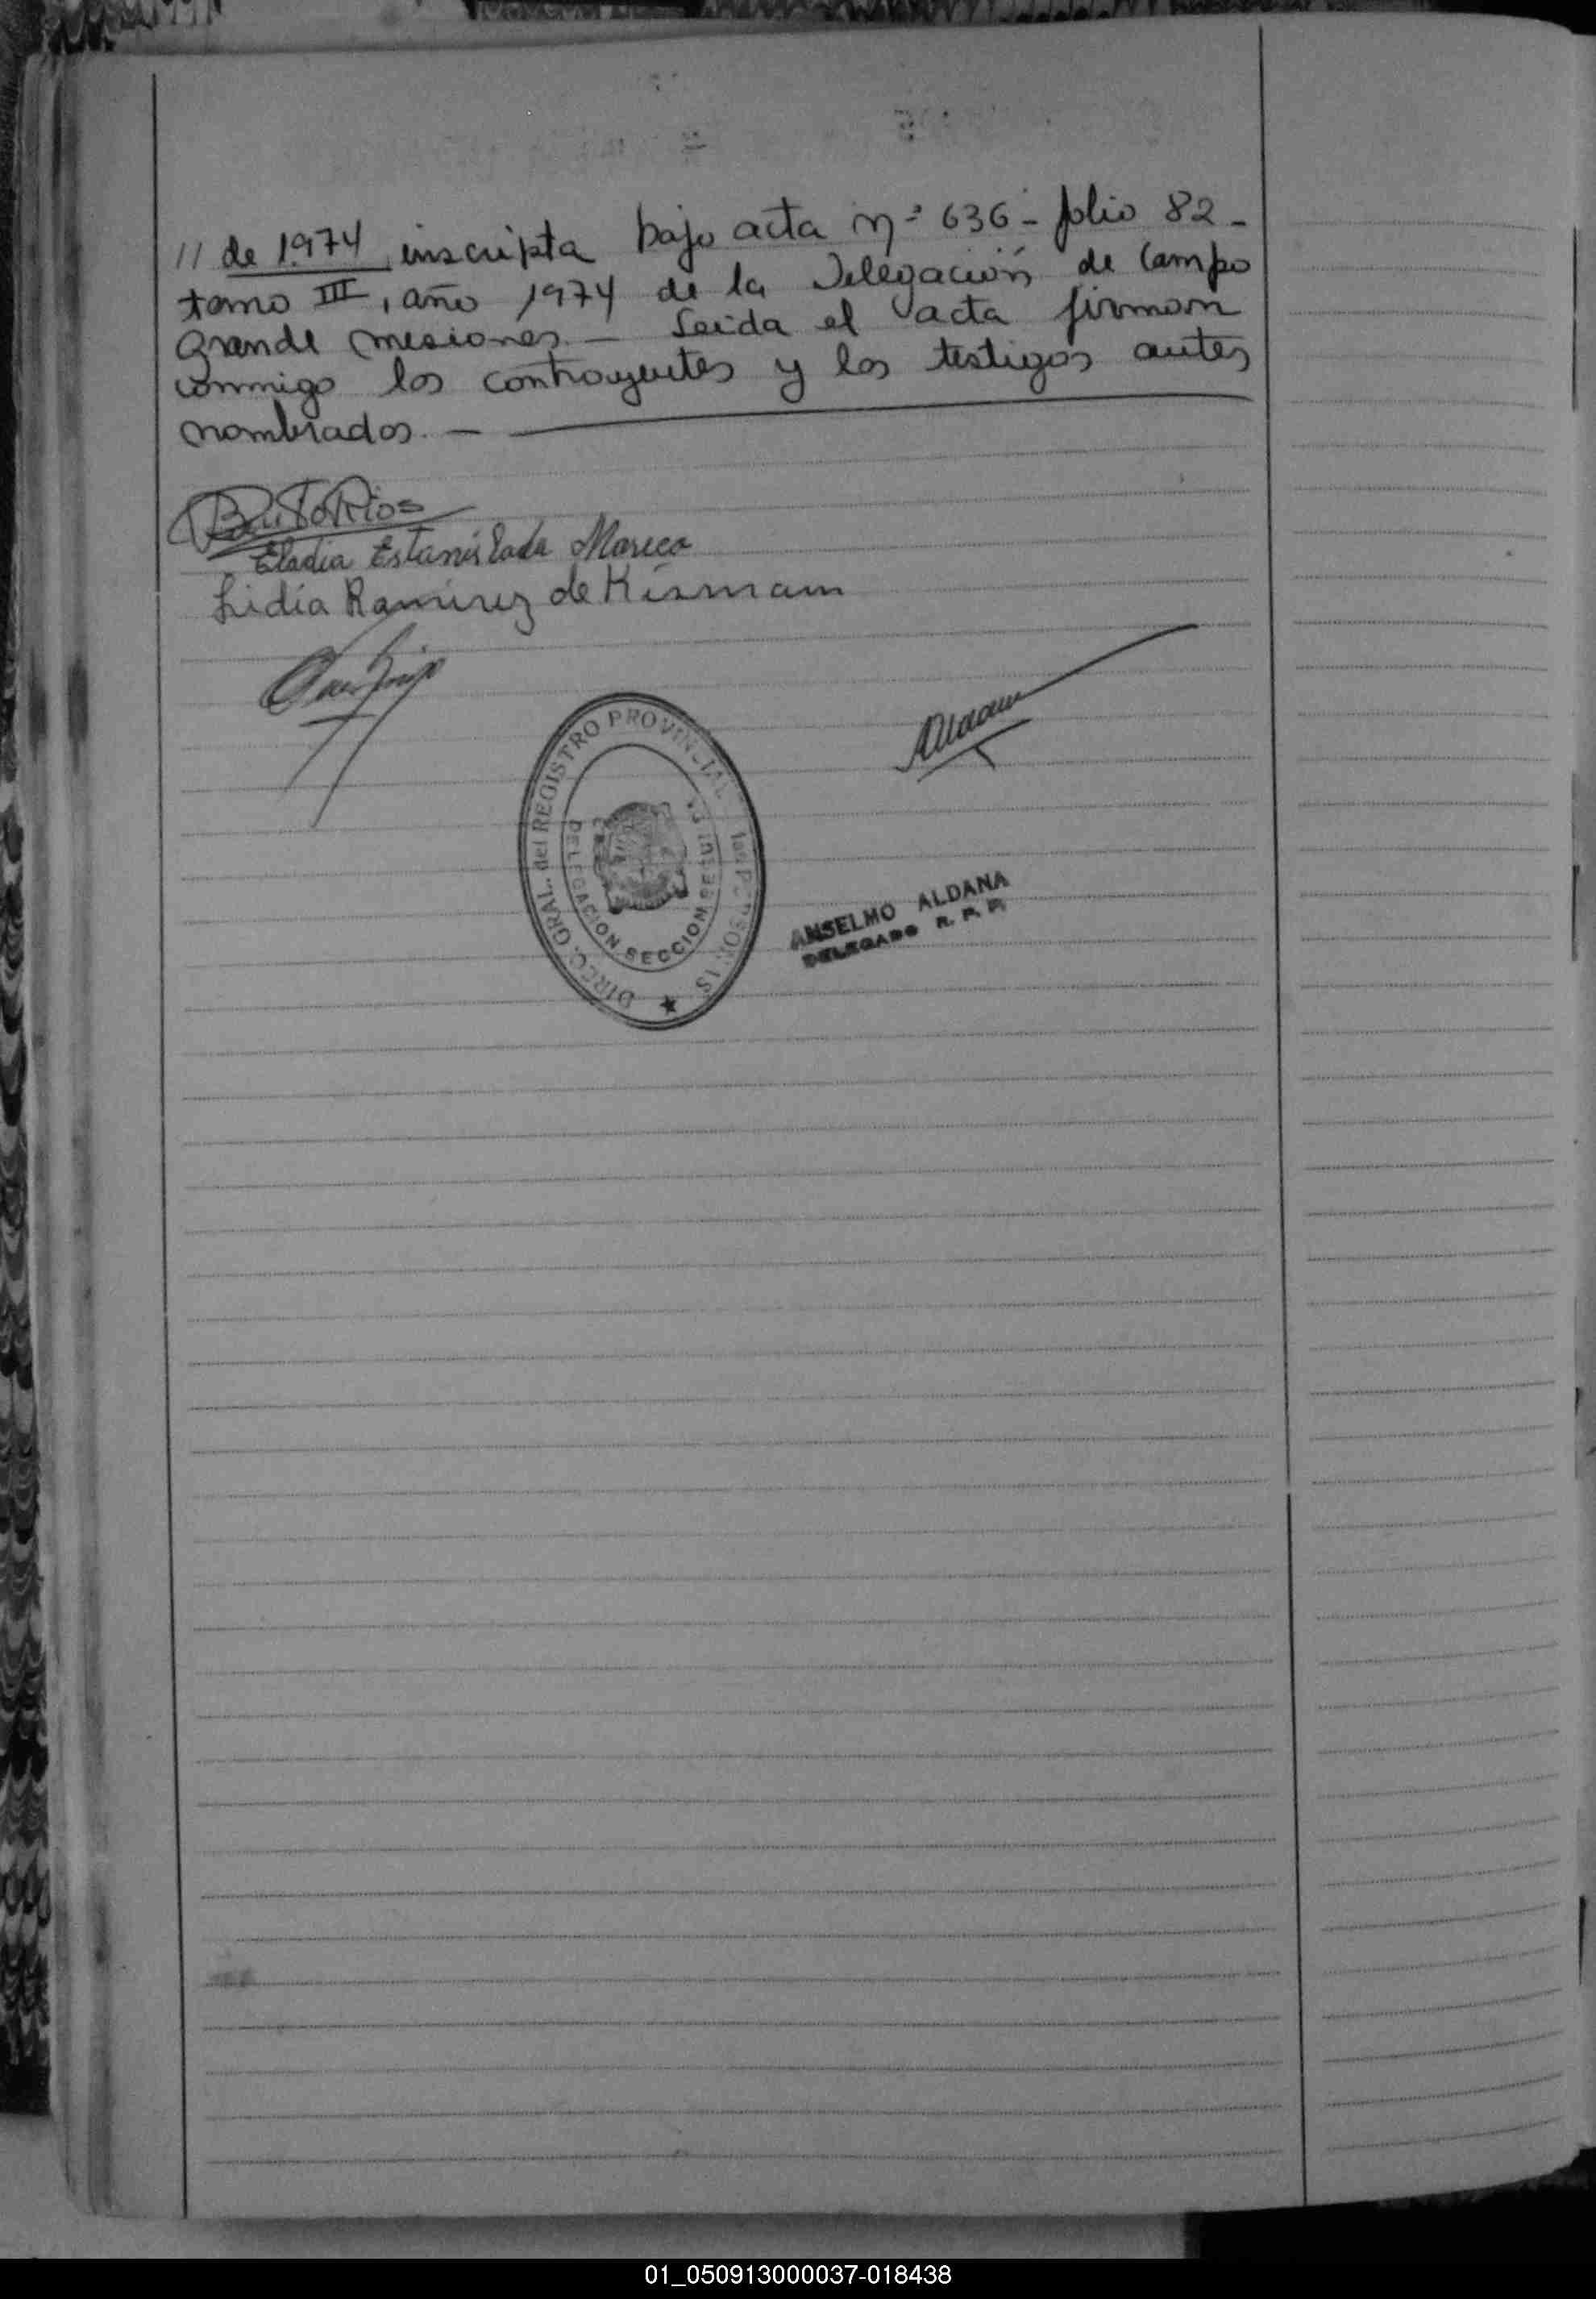 // de 1974, inscripta bajo acta nº 636 - folio 82 -
tomo III, año 1974 de la Delegación de Campo
Grande Misiones. - Leida el acta firman
conmigo los contrayentes y los testigos antes
nombrados. -
Eladia Estanislada Mareco
Lidia Ramirez de Kisman
Aldana
DIREC. GRAL. del REGISTRO PROVINCIAL de las PERSONAS
DELEGACION SECCION
ANSELMO ALDANA
DELEGADO R. P. P.
01_050913000037-018438